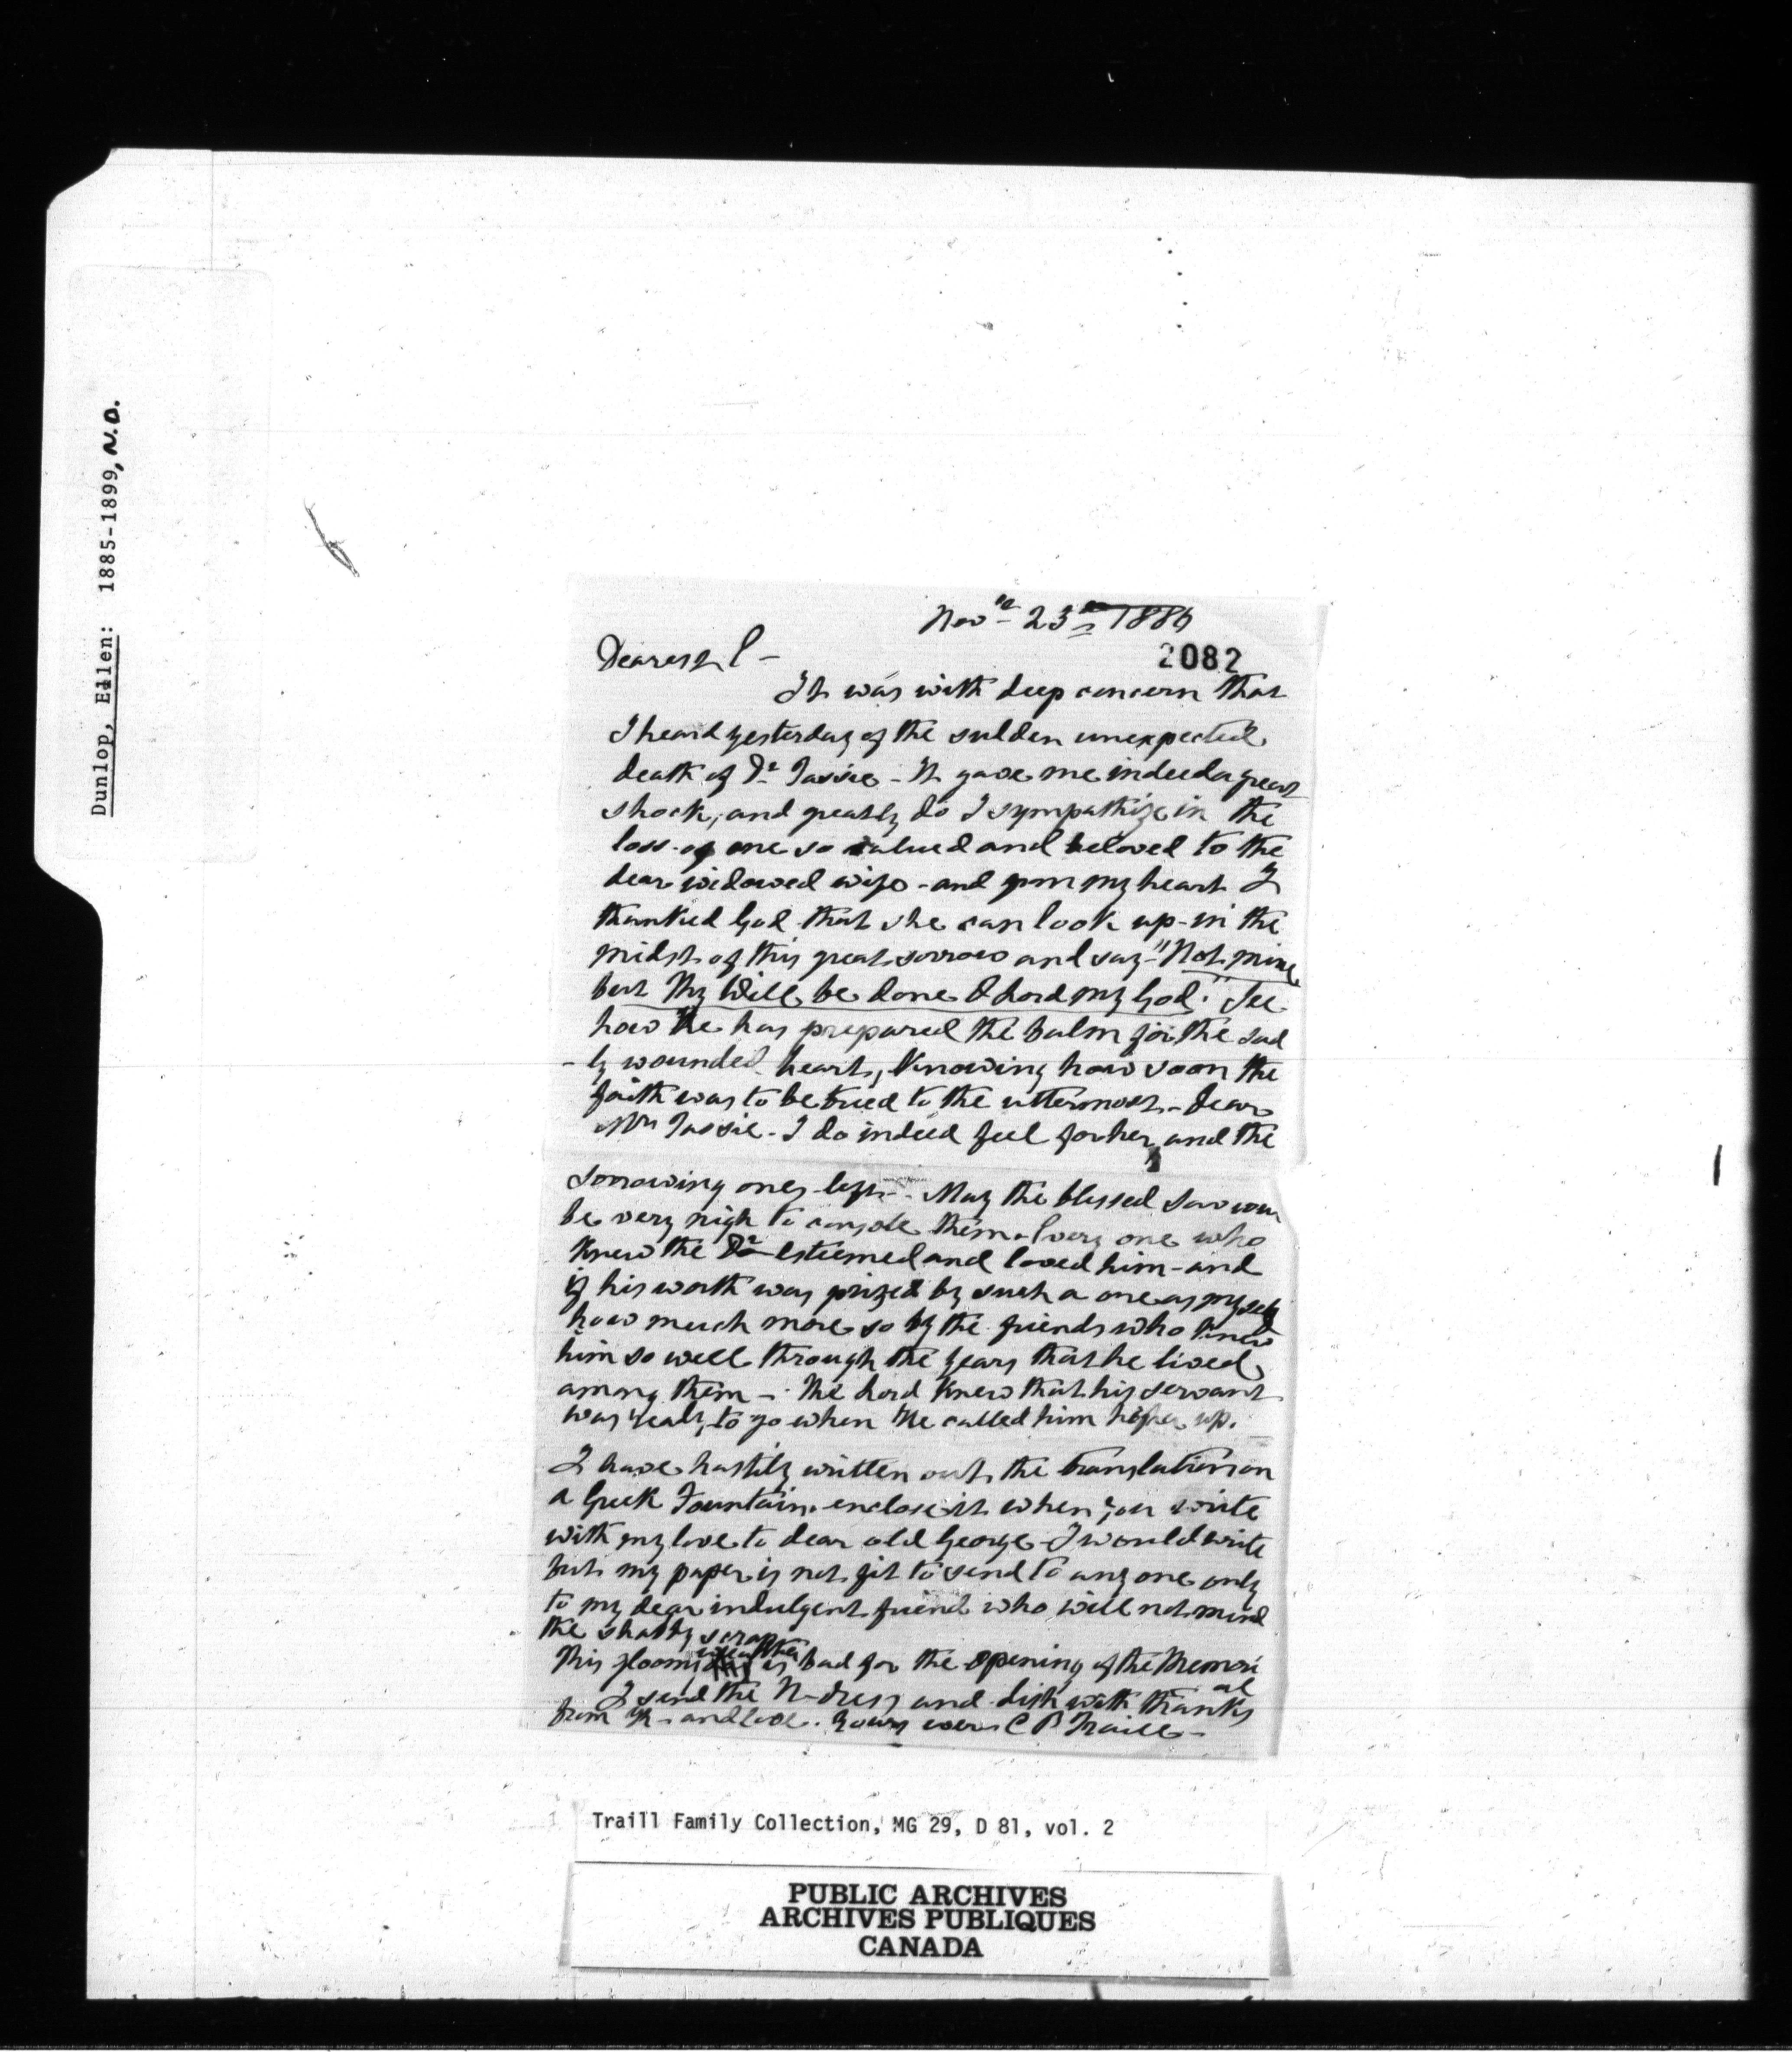 Dunlop, Ellen: 1885-1899, N.D.
Novr 23rd 1886
2082
Dearest E -
It was with deep concern that
I heard yesterday of the sudden unexpected
death of Dr Tassie - It gave me indeed a great
shock, and greatly do I sympathize in the
loss of one so valued and beloved to the
dear widowed wife - and from my heart I
thanked God that she can look up - in the
midst of this great sorrow and say - "Not mine
but Thy Will be done O Lord my God." See
how He has prepared the balm for the sad
-ly wounded heart, Knowing how soon the
faith was to be tried to the uttermost - Dear
Mrs Tassie - I do indeed feel for her and the
sorrowing ones left - May the blessed Saviour
be very nigh to console them - Every one who
Knew the Dr esteemed and loved him - and
if his worth was prized by such a one as myself
how much more so by the friends who knew
him so well through the years that he lived
among them - The Lord Knew that his servant
was ready to go when He called him up.
I have hastily written out the translation on
a Greek Fountain enclose it when you write
with my love to dear old George - I would write
but my paper is not fit to send to any one only
to my dear indulgent friend who will not mind
the shabby scrap
This gloomy weather is bad for the opening of the Memori
al
I send the N-dress and dish with thanks
from K - and love. Yours ever C P Traill -
Traill Family Collection, MG 29, D 81, vol. 2
PUBLIC ARCHIVES
ARCHIVES PUBLIQUES
CANADA